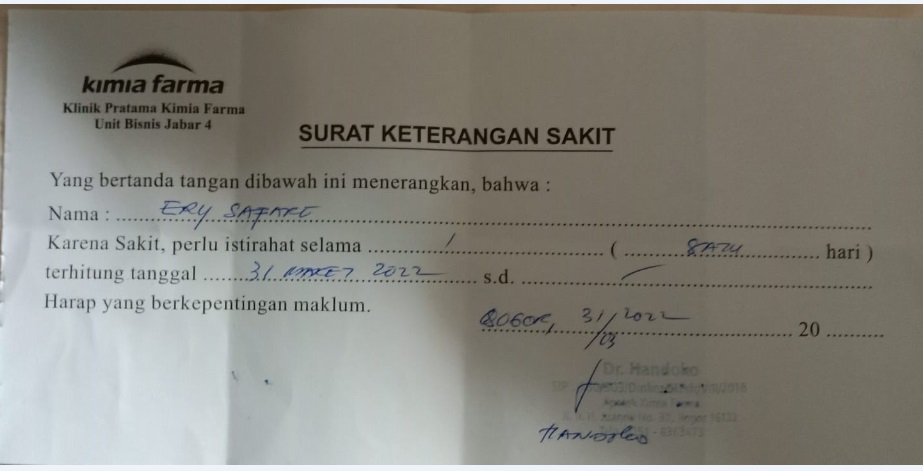 kimia farma
Klinik Pratama Kimia Farma
Unit Bisnis Jabar 4
SURAT KETERANGAN SAKIT
Yang bertanda tangan dibawah ini menerangkan, bahwa :
Nama : ERY SAFARI
Karena Sakit, perlu istirahat selama 1 ( SATU hari )
terhitung tanggal 31 MARET 2022 s.d. —
Harap yang berkepentingan maklum.
BOGOR, 31/03/2022 20
Dr. Handoko
HANDOKO